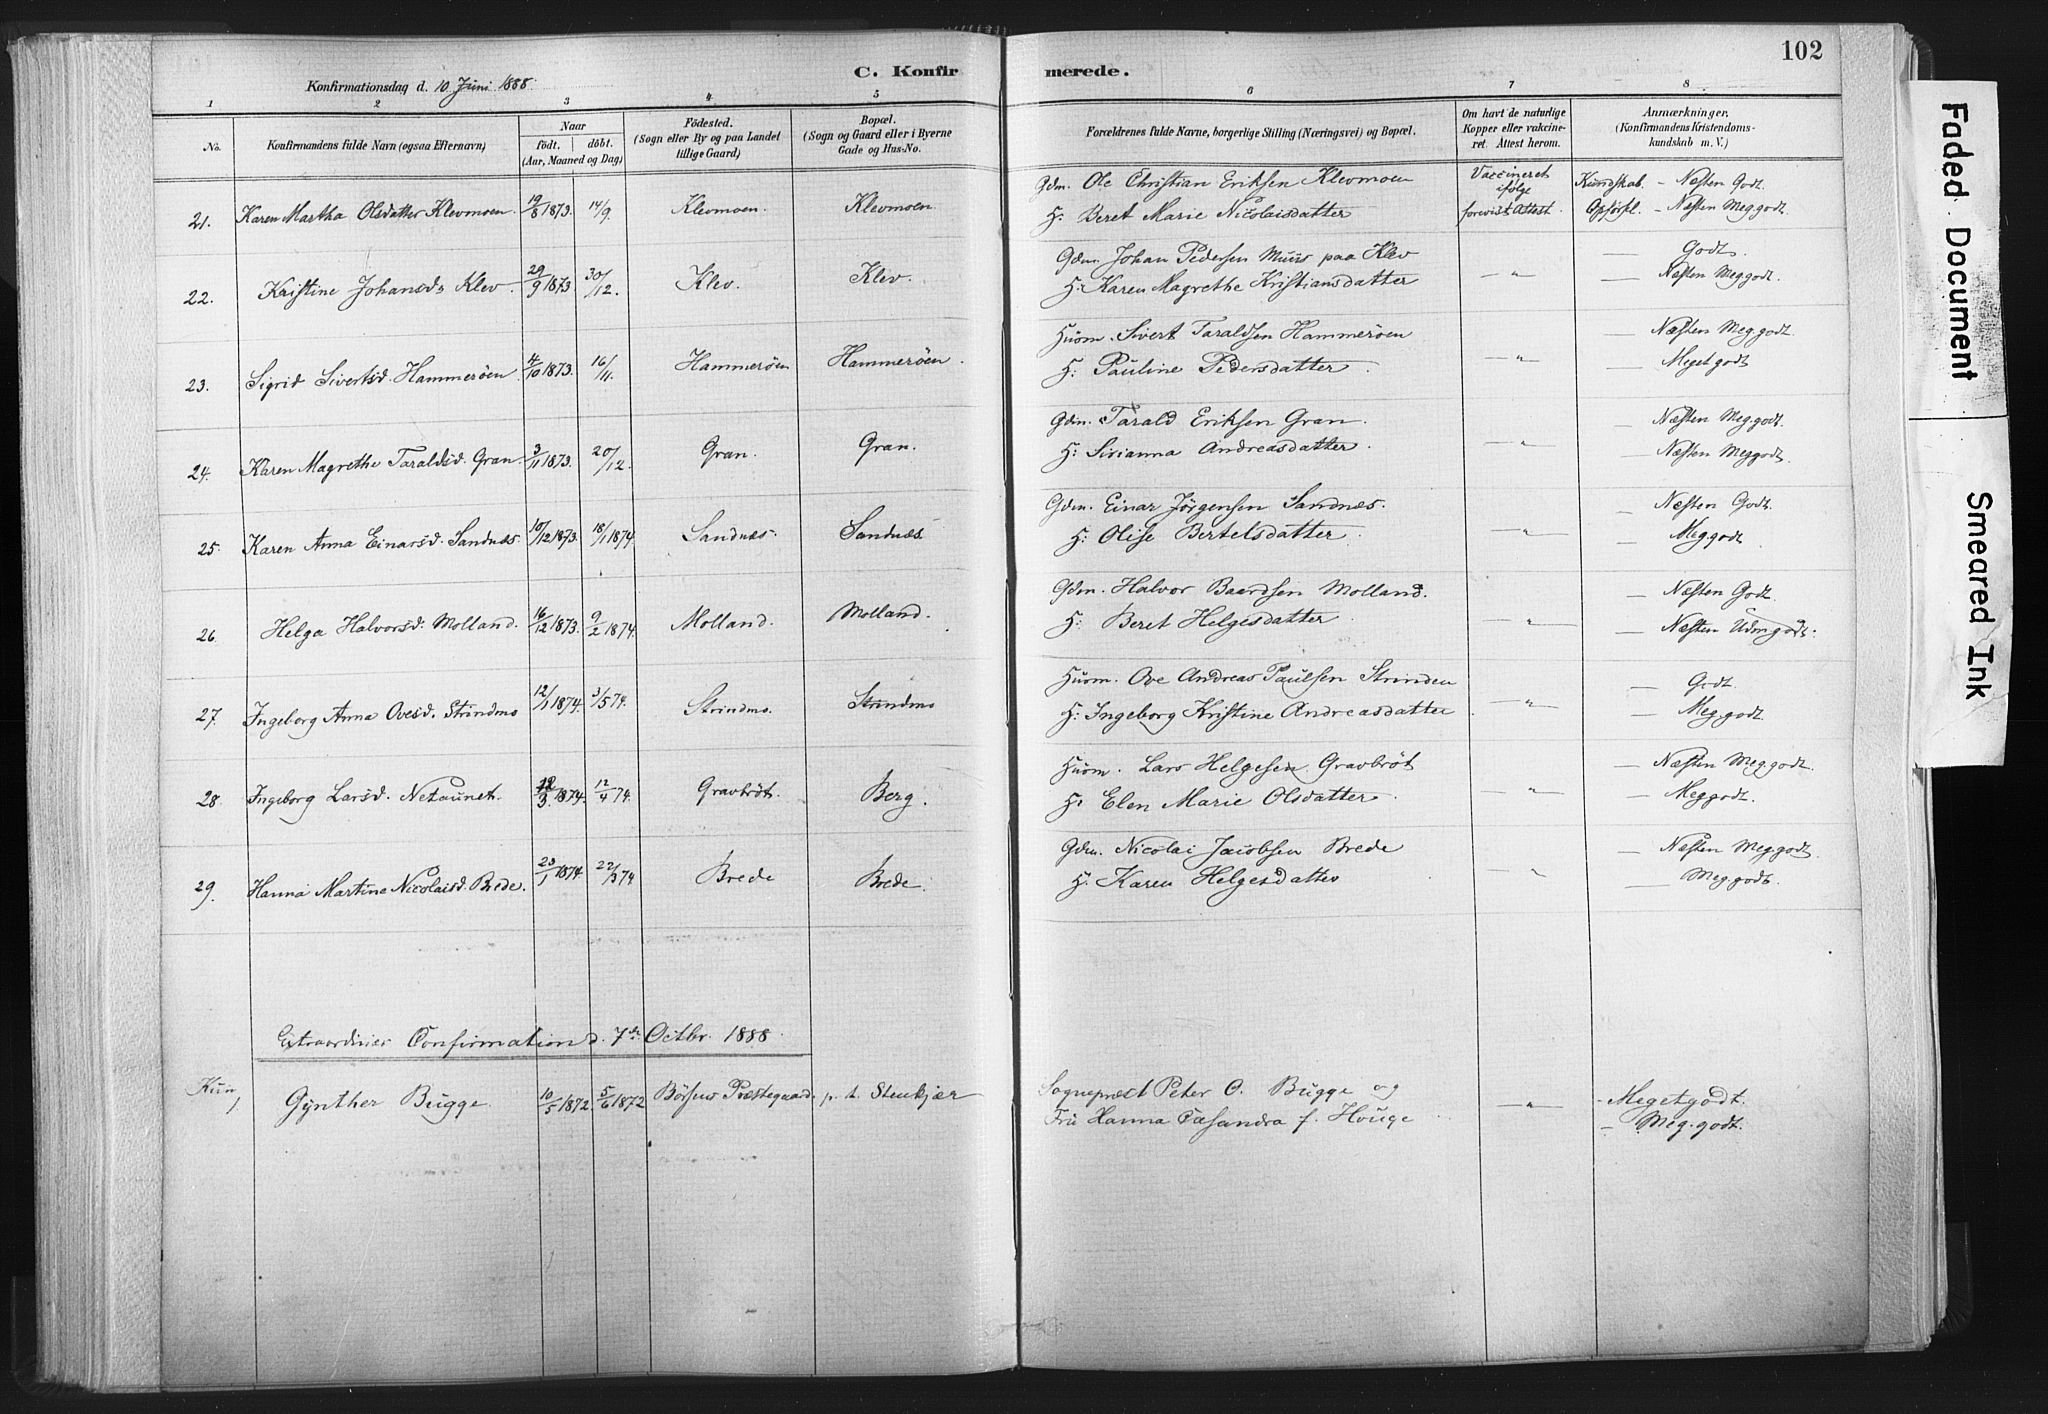 102
C. Konfirmerede.
Konfirmationsdag d. 10 Juni 1888.
1 2 3 4 5 6 7 8
No. Konfirmandens fulde Navn (ogsaa Efternavn) Naar födt. döbt. (Aar, Maaned og Dag) Födested. (Sogn eller By og paa Landet tillige Gaard) Bopæl. (Sogn og Gaard eller i Byerne Gade og Hus-No. Forældrenes fulde Navne, borgerlige Stilling (Næringsvei) og Bopæl. Om havt de naturlige Kopper eller vakcineret. Attest herom. Anmærkninger. (Konfirmandens Kristendomskundskab m. V.)
21. Karen Martha Olsdatter Klevmoen. 19/8 1873. 14/9. Klevmoen. Klevmoen. Gdm. Ole Christian Eriksen Klevmoen Vaccineret ifølge Kundskab. - Næsten Godt.
H: Beret Marie Nicolaisdatter forevist Attest. Opførsl. - Næsten Meg. godt.
22. Kristine Johansd. Klev. 29/9 1873. 30/12. Klev. Klev. Gdm. Johan Pedersen Muus paa Klev — Godt.
H: Karen Magrethe Kristiansdatter —"— — Næsten Meg. godt.
23. Sigrid Sivertsd. Hammerøen. 4/10 1873. 16/11. Hammerøen Hammerøen. Husm. Sivert Taraldsen Hammerøen — Næsten Meg. godt.
H: Pauline Pedersdatter. —"— — Meget godt
24. Karen Magrethe Taraldsd. Gran. 3/11 1873. 20/12. Gran. Gran. Gdm. Tarald Eriksen Gran. — Næsten Meg. godt.
H: Sivianna Andreasdatter. —"— — Næsten Meg godt.
25. Karen Anna Einarsd. Sandnæs. 10/12 1873. 18/1 1874. Sandnæs. Sandnæs. Gdm. Einar Jørgensen Sandnæs. — Næsten Godt.
H: Olise Bertelsdatter. —"— — Meg godt
26. Helga Halvorsd. Molland. 16/12 1873. 9/2 1874. Molland. Molland. Gdm. Halvor Baardsen Molland. — Næsten Godt.
H: Beret Helgesdatter. —"— — Næsten Udm godt.
27. Ingeborg Anna Ovesd. Strindmo 12/1 1874. 3/5 74. Strindmo. Strindmo Husm. Ove Andreas Paulsen Strinden — Godt.
H: Ingeborg Kristine Andreasdatter —"— — Meg. godt.
28. Ingeborg Larsd. Netaunet. /3 1874. 12/4 74. Gravbrøt. Berg. Husm. Lars Helgesen Gravbrøt — Næsten Meg. godt.
H. Elen Marie Olsdatter. —"— — Meg godt.
29. Hanna Martine Nicolaisd. Brede. 23/1 1874. 22/3 74 Brede Brede. Gdm. Nicolai Jacobsen Brede — Næsten Meg godt.
H. Karen Helgesdatter —"— — Meg godt.
Extraordinær Confirmation d. 7de Octbr. 1888.
Kun 1 Gynther Bugge 10/5 1872. 5/6 1872 Børsens Præstegaard, p. t. Stenkjær Sognepræst Peter O. Bugge og - Meget godt.
Fru Hanna Casandra f. Houge. —"— - Meg. godt.
Faded Document
Smeared Ink